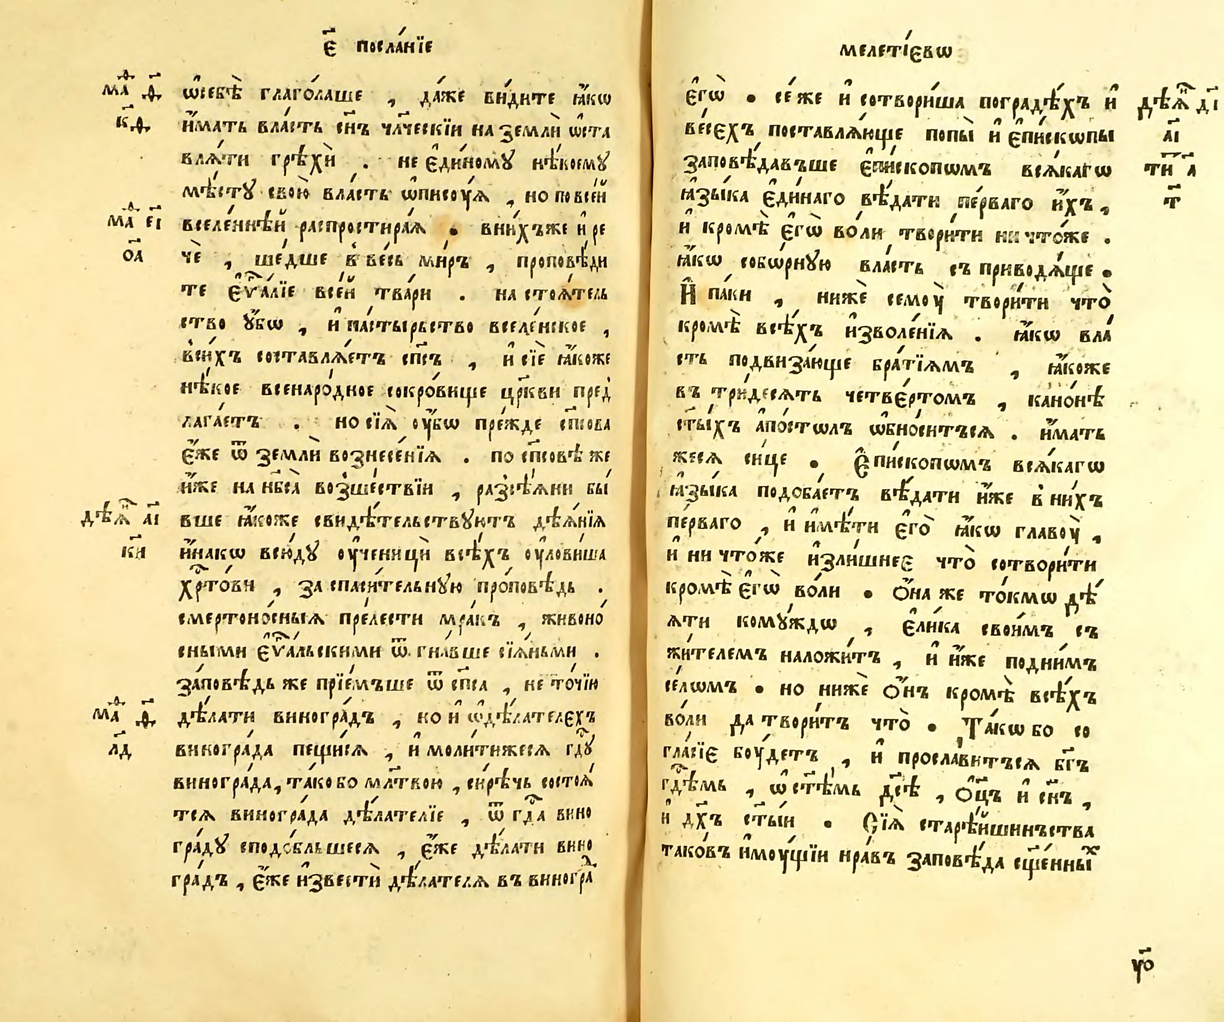 є҃ посла́нїе
ма́ ѳ҃ ѡ҆себѣ̀ глаго́лаше , да́же ви́дите ꙗ҆́кѡ
к҃ѳ и҆́мать вла́сть сн҃ъ чл҃ческїи на землѝ ѡ҆ста
влѧ́ти грѣхѝ . не є҆ди́ному нѣ́коему
мѣ́сту свою̀ вла́сть ѡ҆писоу́ѧ , но повсе́й
ма́ є҃і вселе́ннѣй распростира́ѧ . вни́хъже и҆ ре
о҃а че , ше́дше в̾ ве́сь ми́ръ , проповѣ́ди
те є҆ѵⷢ҇а́лїе все́й тва́ри . на стоѧ́тель
ство ᲂу҆́бѡ , и҆ па́стырьство вселе́нское ,
всѝхъ составлѧ́етъ сп҃съ , и҆ сїѐ ꙗ҆́коже
нѣ́кое всенаро́дное сокро́вище цр҃кви пред
лага́етъ . но сїѧ̀ ᲂу҆́бѡ пре́жде сп҃сова
є҆́же ѿ землѝ вознесе́нїѧ . по сп҃совѣ же
и҆́же на нб҃са̀ возше́ствїи , разсѣ́ѧни бы́
дѣѧ҃ а҃і вше ꙗ҆́коже свидѣ́тельствуютъ дѣѧ́нїѧ
к҃и и҆на́кѡ всю́ду ᲂу҆ченицѝ всѣ́хъ ᲂу҆лови́ша
хрⷭ҇то́ви , за спаси́тельную про́повѣдь .
смертоно́сныѧ пре́лести мра́къ , живоно́
сными є҆ѵⷢ҇а́льскими ѿгна́вше сїѧ́ньми .
за́повѣдь же прїе́мъше ѿ сп҃са , не то́чїю
ма́ ѳ҃ дѣ́лати виногра́дъ , но и҆ ѡ҆дѣ́лателехъ
л҃д виногра́да пещи́сѧ , и҆ моли́тижесѧ гдⷭ҇у
виногра́да, та́ко бо мл҃твою , си́рѣчь состоѧ́
тсѧ виногра́да дѣ́лателїе , ѿ гдⷭ҇а вино
гра́ду сподо́бльшеесѧ , є҆́же дѣ́лати вино
гра́дъ , є҆́же и҆звестѝ дѣ́лателѧ въ виногра
меле́тїевѡ
є҆гѡ̀ . се́ же и҆ сотвори́ша поградѣ́хъ и҆ дѣѧ҃ д҃і
ве́сехъ поставлѧ́юще попы̀ и҆ є҆пи́скѡпы а҃і
заповѣ́давъше є҆пи́скопѡмъ всѧ́кагѡ ти҃ а҃
ꙗ҆зы́ка є҆ди́наго вѣ́дати пе́рваго и҆́хъ , г҃
и҆ кромѣ̀ є҆гѡ̀ во́ли твори́ти ни что́же .
ꙗ҆́кѡ собо́рную вла́сть съ приводѧ́ще .
И҆ па́ки , нижѐ семоу̀ твори́ти что̀
кромѣ̀ всѣ́хъ и҆зволе́нїѧ . ꙗ҆́кѡ вла́
сть подвиза́юще бра́тїѧмъ , ꙗ҆́коже
въ три́десѧть четве́ртомъ , кано́нѣ
ст҃ы́хъ а҆по́стѡлъ ѡ҆бно́ситъсѧ . и҆́мать
жесѧ си́це . Є҆пи́скопѡмъ всѧ́кагѡ
ꙗ҆зы́ка подоба́етъ вѣ́дати и҆́же в̾ ни́хъ
пе́рваго , и҆ и҆мѣ́ти є҆го̀ ꙗ҆́кѡ главоу̀ ,
и҆ ни что́же и҆зли́шнее что̀ сотвори́ти
кромѣ̀ є҆гѡ̀ во́ли . Ѻ҆́на же то́кмѡ дѣ́
ѧти комꙋ́ждѡ , є҆ли́ка свои́мъ съ
жи́телемъ наложи́тъ , и҆ и҆́же под̾ни́мъ
се́лѡмъ . но нижѐ Ѻ҆́нъ кромѣ̀ всѣ́хъ
во́ли да твори́тъ что̀ . Та́кѡ бо со
гла́сїе боу́детъ , и҆ просла́витъсѧ бг҃ъ
гдⷭ҇емь , ѡ҆ ст҃ѣ́мь дс҃ѣ , Ѻ҆ц҃ъ и҆ сн҃ъ ,
и҆ дх҃ъ ст҃ы́и . Сїѧ̀ старѣ́йшинъства
тако́въ и҆моу́щїи нра́въ за́повѣда сщ҃е́нныⷯ
ѱ҃о